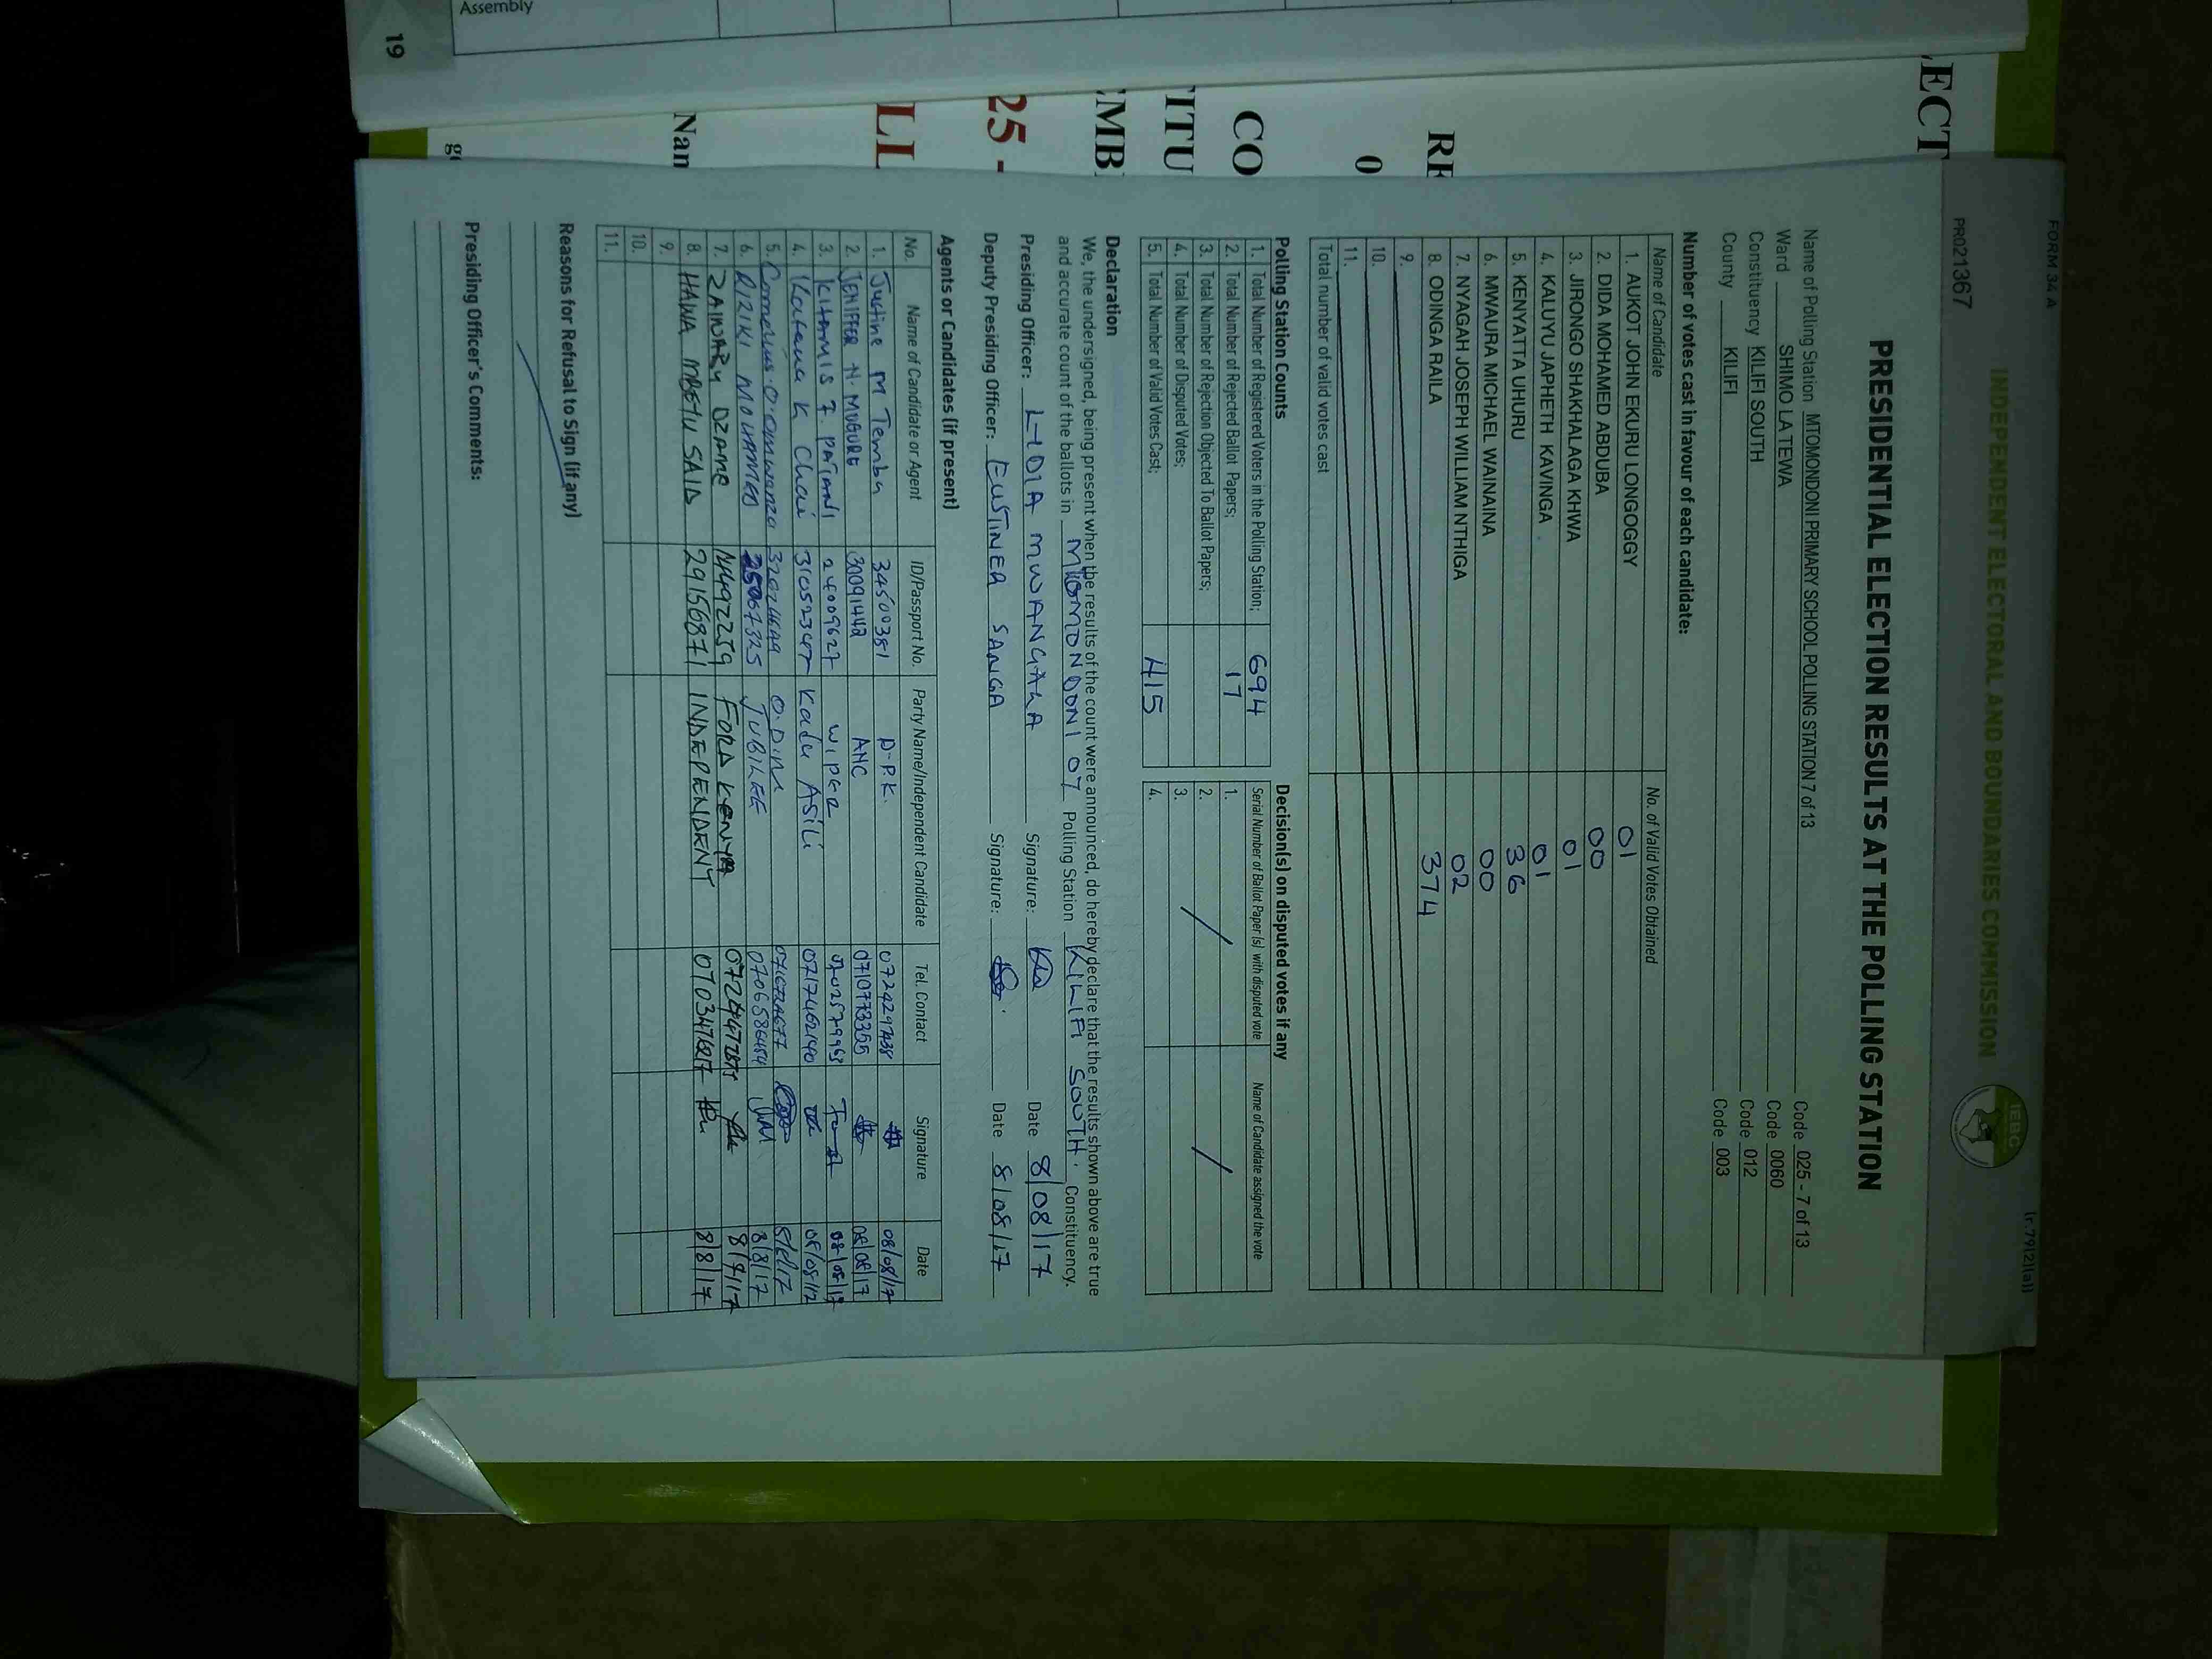 Assembly
19
ECT
RE
0
CO
ITU
EMB
25 -
LI
Nam
ge
FORM 34 A
(r.79(2)(a))
INDEPENDENT ELECTORAL AND BOUNDARIES COMMISSION
IEBC
PR021367
PRESIDENTIAL ELECTION RESULTS AT THE POLLING STATION
Name of Polling Station MTOMONDONI PRIMARY SCHOOL POLLING STATION 7 of 13 Code 025 - 7 of 13
Ward SHIMO LA TEWA Code 0060
Constituency KILIFI SOUTH Code 012
County KILIFI Code 003
Number of votes cast in favour of each candidate:
Name of Candidate No. of Valid Votes Obtained
1. AUKOT JOHN EKURU LONGOGGY 01
2. DIDA MOHAMED ABDUBA 00
3. JIRONGO SHAKHALAGA KHWA 01
4. KALUYU JAPHETH KAVINGA 01
5. KENYATTA UHURU 36
6. MWAURA MICHAEL WAINAINA 00
7. NYAGAH JOSEPH WILLIAM NTHIGA 02
8. ODINGA RAILA 374
9.
10.
11.
Total number of valid votes cast
Polling Station Counts
1. Total Number of Registered Voters in the Polling Station; 694
2. Total Number of Rejected Ballot Papers; 17
3. Total Number of Rejection Objected To Ballot Papers;
4. Total Number of Disputed Votes;
5. Total Number of Valid Votes Cast; 415
Decision(s) on disputed votes if any
Serial Number of Ballot Paper (s) with disputed vote Name of Candidate assigned the vote
1.
2.
3.
4.
Declaration
We, the undersigned, being present when the results of the count were announced, do hereby declare that the results shown above are true
and accurate count of the ballots in MTOMONDONI 07 Polling Station KILIFI SOUTH. Constituency.
Presiding Officer: LYDIA MWANGALA Signature: Date 8/08/17
Deputy Presiding Officer: EUSTINER SANGA Signature: Date 8/08/17
Agents or Candidates (if present)
No. Name of Candidate or Agent ID/Passport No. Party Name/Independent Candidate Tel. Contact Signature Date
1. Justine M Tembu 34500381 D.P.K. 08/08/17
2. JENIFFER N. MUGURE 30091442 ANC 0710773355 08/08/17
3. 24009627 WIPER 08/08/17
4. Katana K Chai Kadu Asili 0717462140 08/08/17
5. O.D.M 8/8/17
6. RIZIKI MOHAMED JUBILEE 0706586484 8/8/17
7. ZAINABU DZAME FORD KENYA
8. HANA MBEYU SAID 29156871 INDEPENDENT 8/8/17
9.
10.
11.
Reasons for Refusal to Sign (if any)
Presiding Officer's Comments: